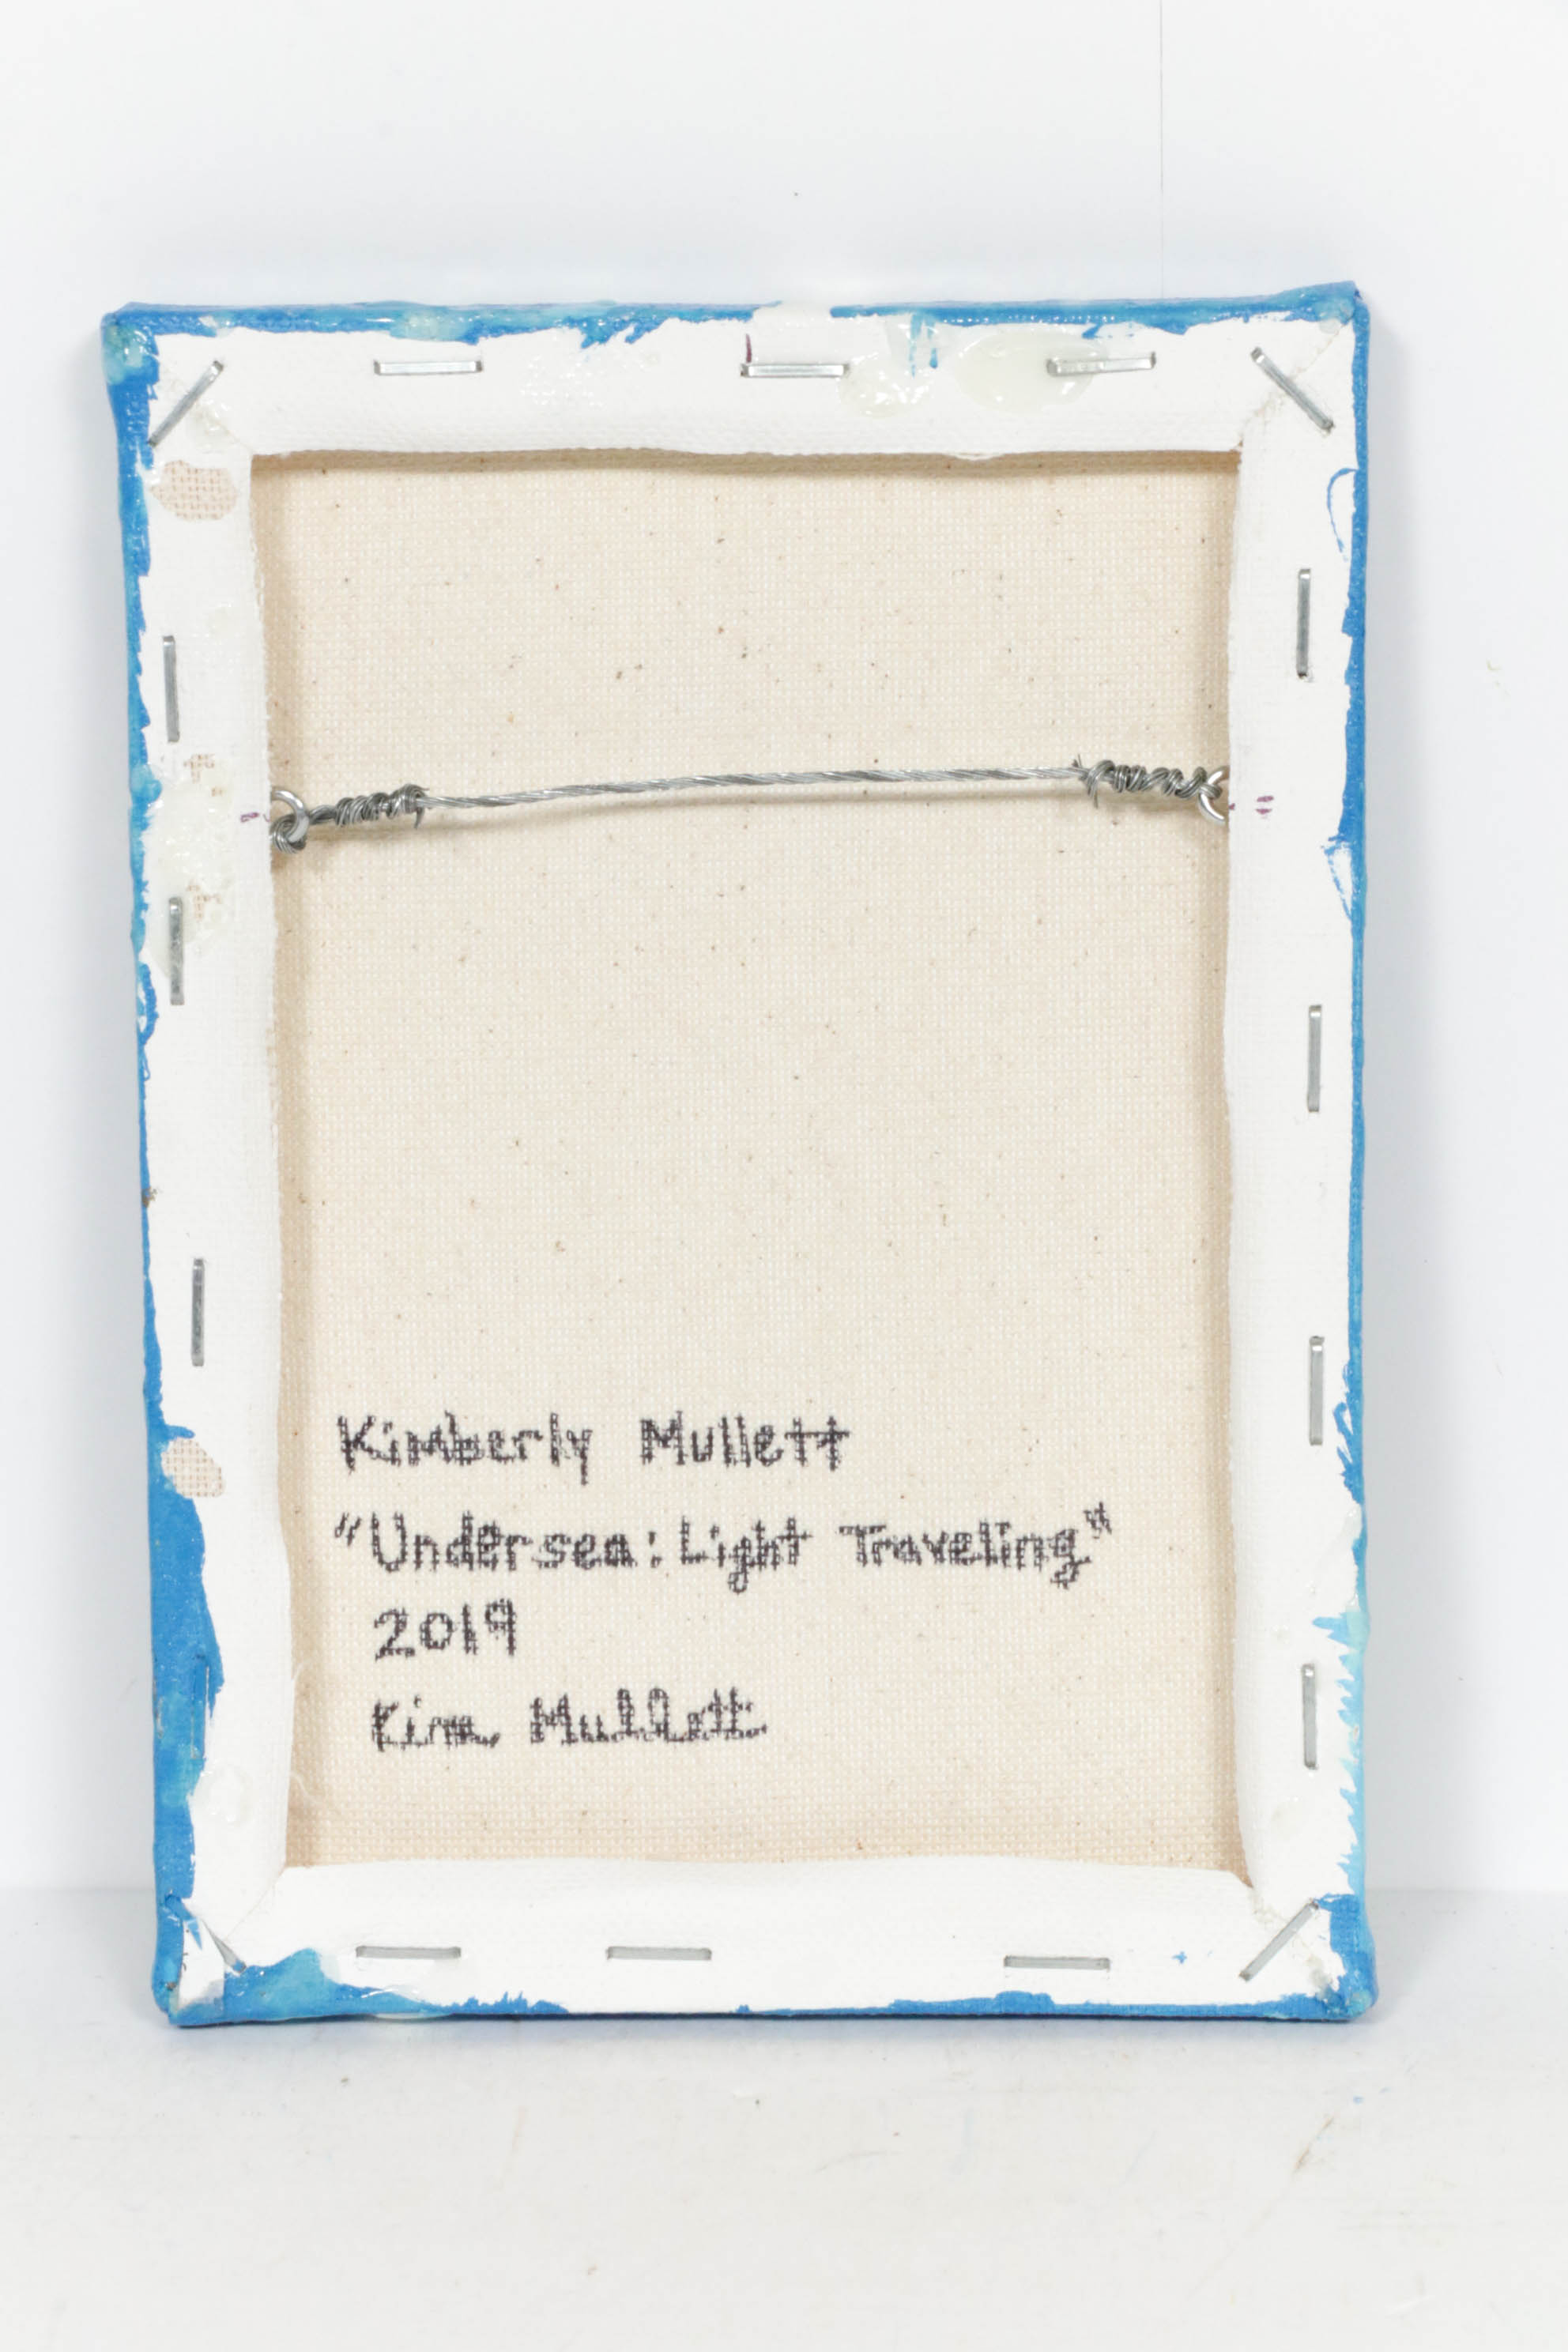 Kimberly Mullett
"Undersea: Light Traveling"
2019
Kim Mullett